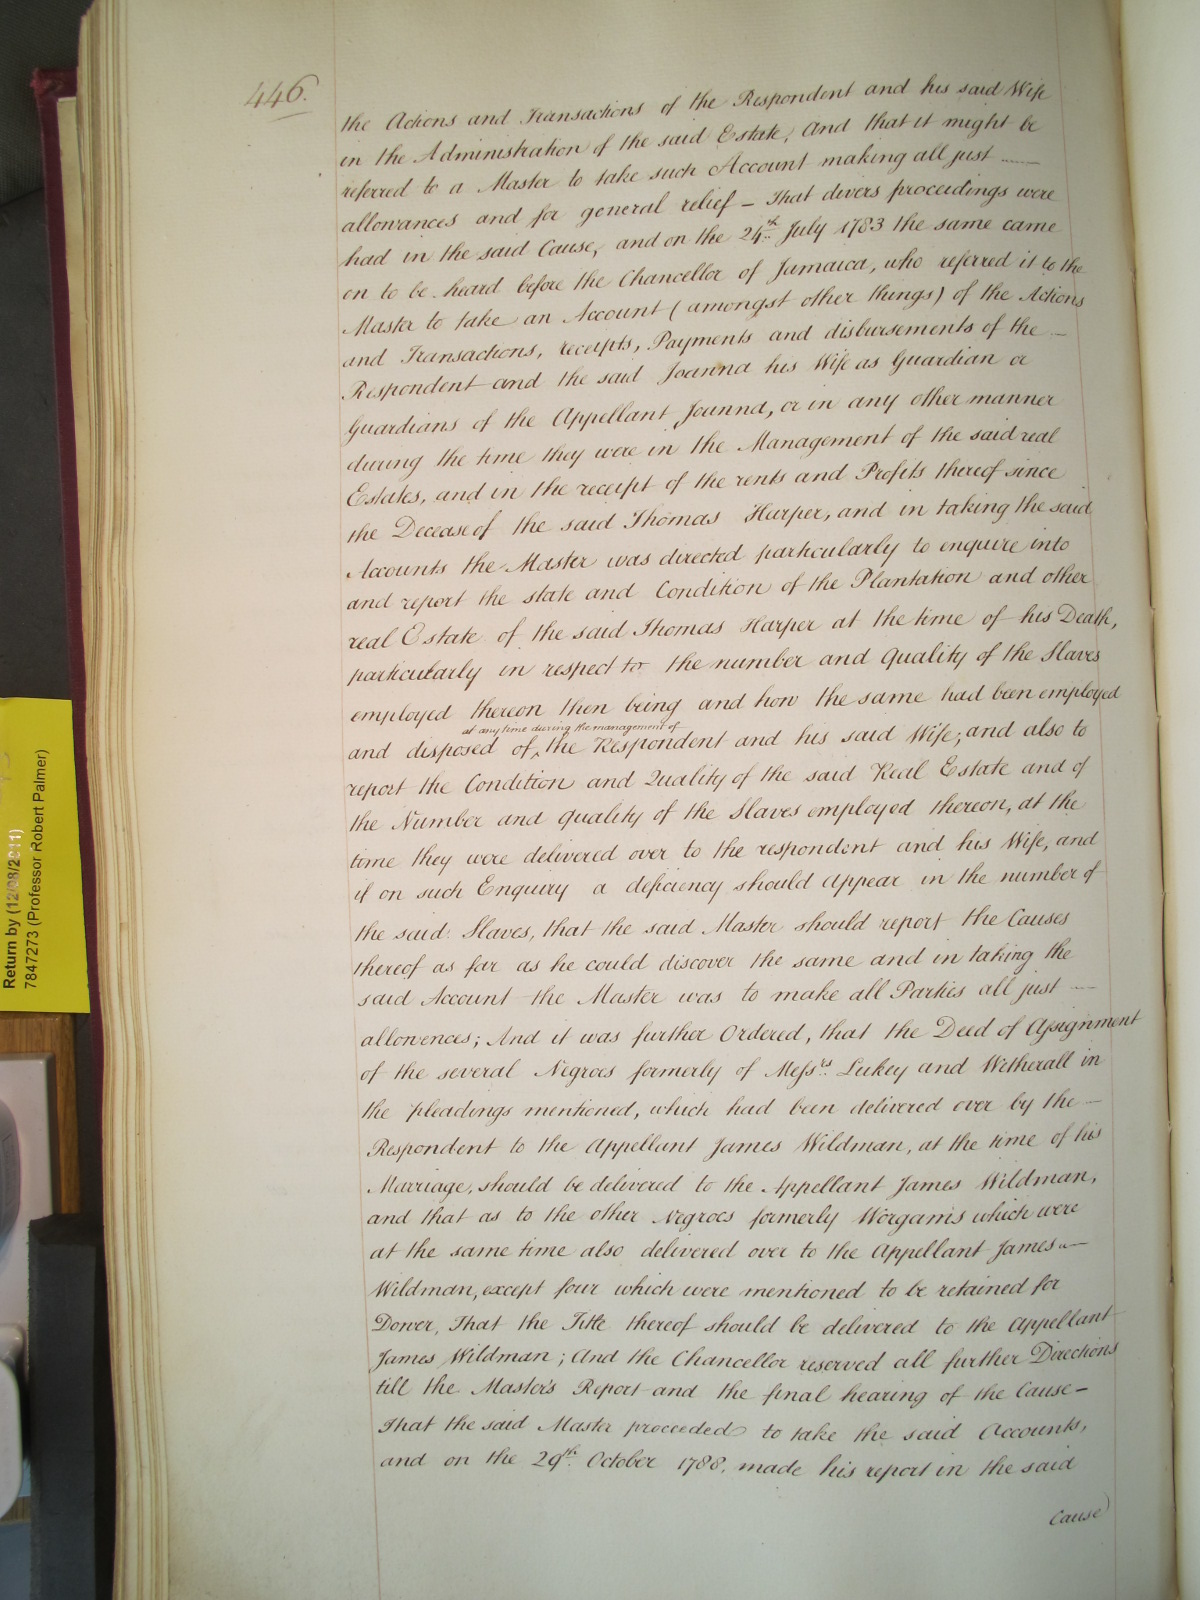 446.
the Actions and Transactions of the Respondent and his said Wife
in the Administration of the said Estate, And that it might be
referred to a Master to take such Account making all just
allowances and for general relief – That divers proceedings were
had in the said Cause, and on the 24th July 1783 the same came
on to be heard before the Chancellor of Jamaica, who referred it to the
Master to take an Account (amongst other things) of the Actions
and Transactions, receipts, Payments and disbursements of the
Respondent and the said Joanna his Wife as Guardian or
Guardians of the Appellant Joanna, or in any other manner
during the time they were in the Management of the said real
Estates, and in the receipt of the rents and Profits thereof since
the Decease of the said Thomas Harper, and in taking the said
Accounts the Master was directed particularly to enquire into
and report the state and Condition of the Plantation and other
real Estate of the said Thomas Harper at the time of his Death,
particularly in respect to the number and Quality of the Slaves
employed thereon then being and how the same had been employed
at any time during the management of
and disposed of, the Respondent and his said Wife; and also to
report the Condition and Quality of the said Real Estate and of
the Number and quality of the Slaves employed thereon, at the
time they were delivered over to the respondent and his Wife, and
if on such Enquiry a deficiency should Appear in the number of
the said Slaves, that the said Master should report the Causes
thereof as far as he could discover the same and in taking the
said Account the Master was to make all Parties all just
allowences; And it was further Ordered, that the Deed of Assignment
of the several Negroes formerly of Messrs. Lukey and Witherall in
the pleadings mentioned, which had been delivered over by the
Respondent to the Appellant James Wildman, at the time of his
Marriage, should be delivered to the Appellant James Wildman,
and that as to the other Negroes formerly Worgan's which were
at the same time also delivered over to the Appellant James
Wildman, except four which were mentioned to be retained for
Dower, That the Title thereof should be delivered to the Appellant
James Wildman; And the Chancellor reserved all further Directions
till the Master's Report and the final hearing of the Cause –
That the said Master proceeded to take the said Accounts,
and on the 29th October 1788, made his report in the said
Cause
Return by (12/08/2011)
7847273 (Professor Robert Palmer)